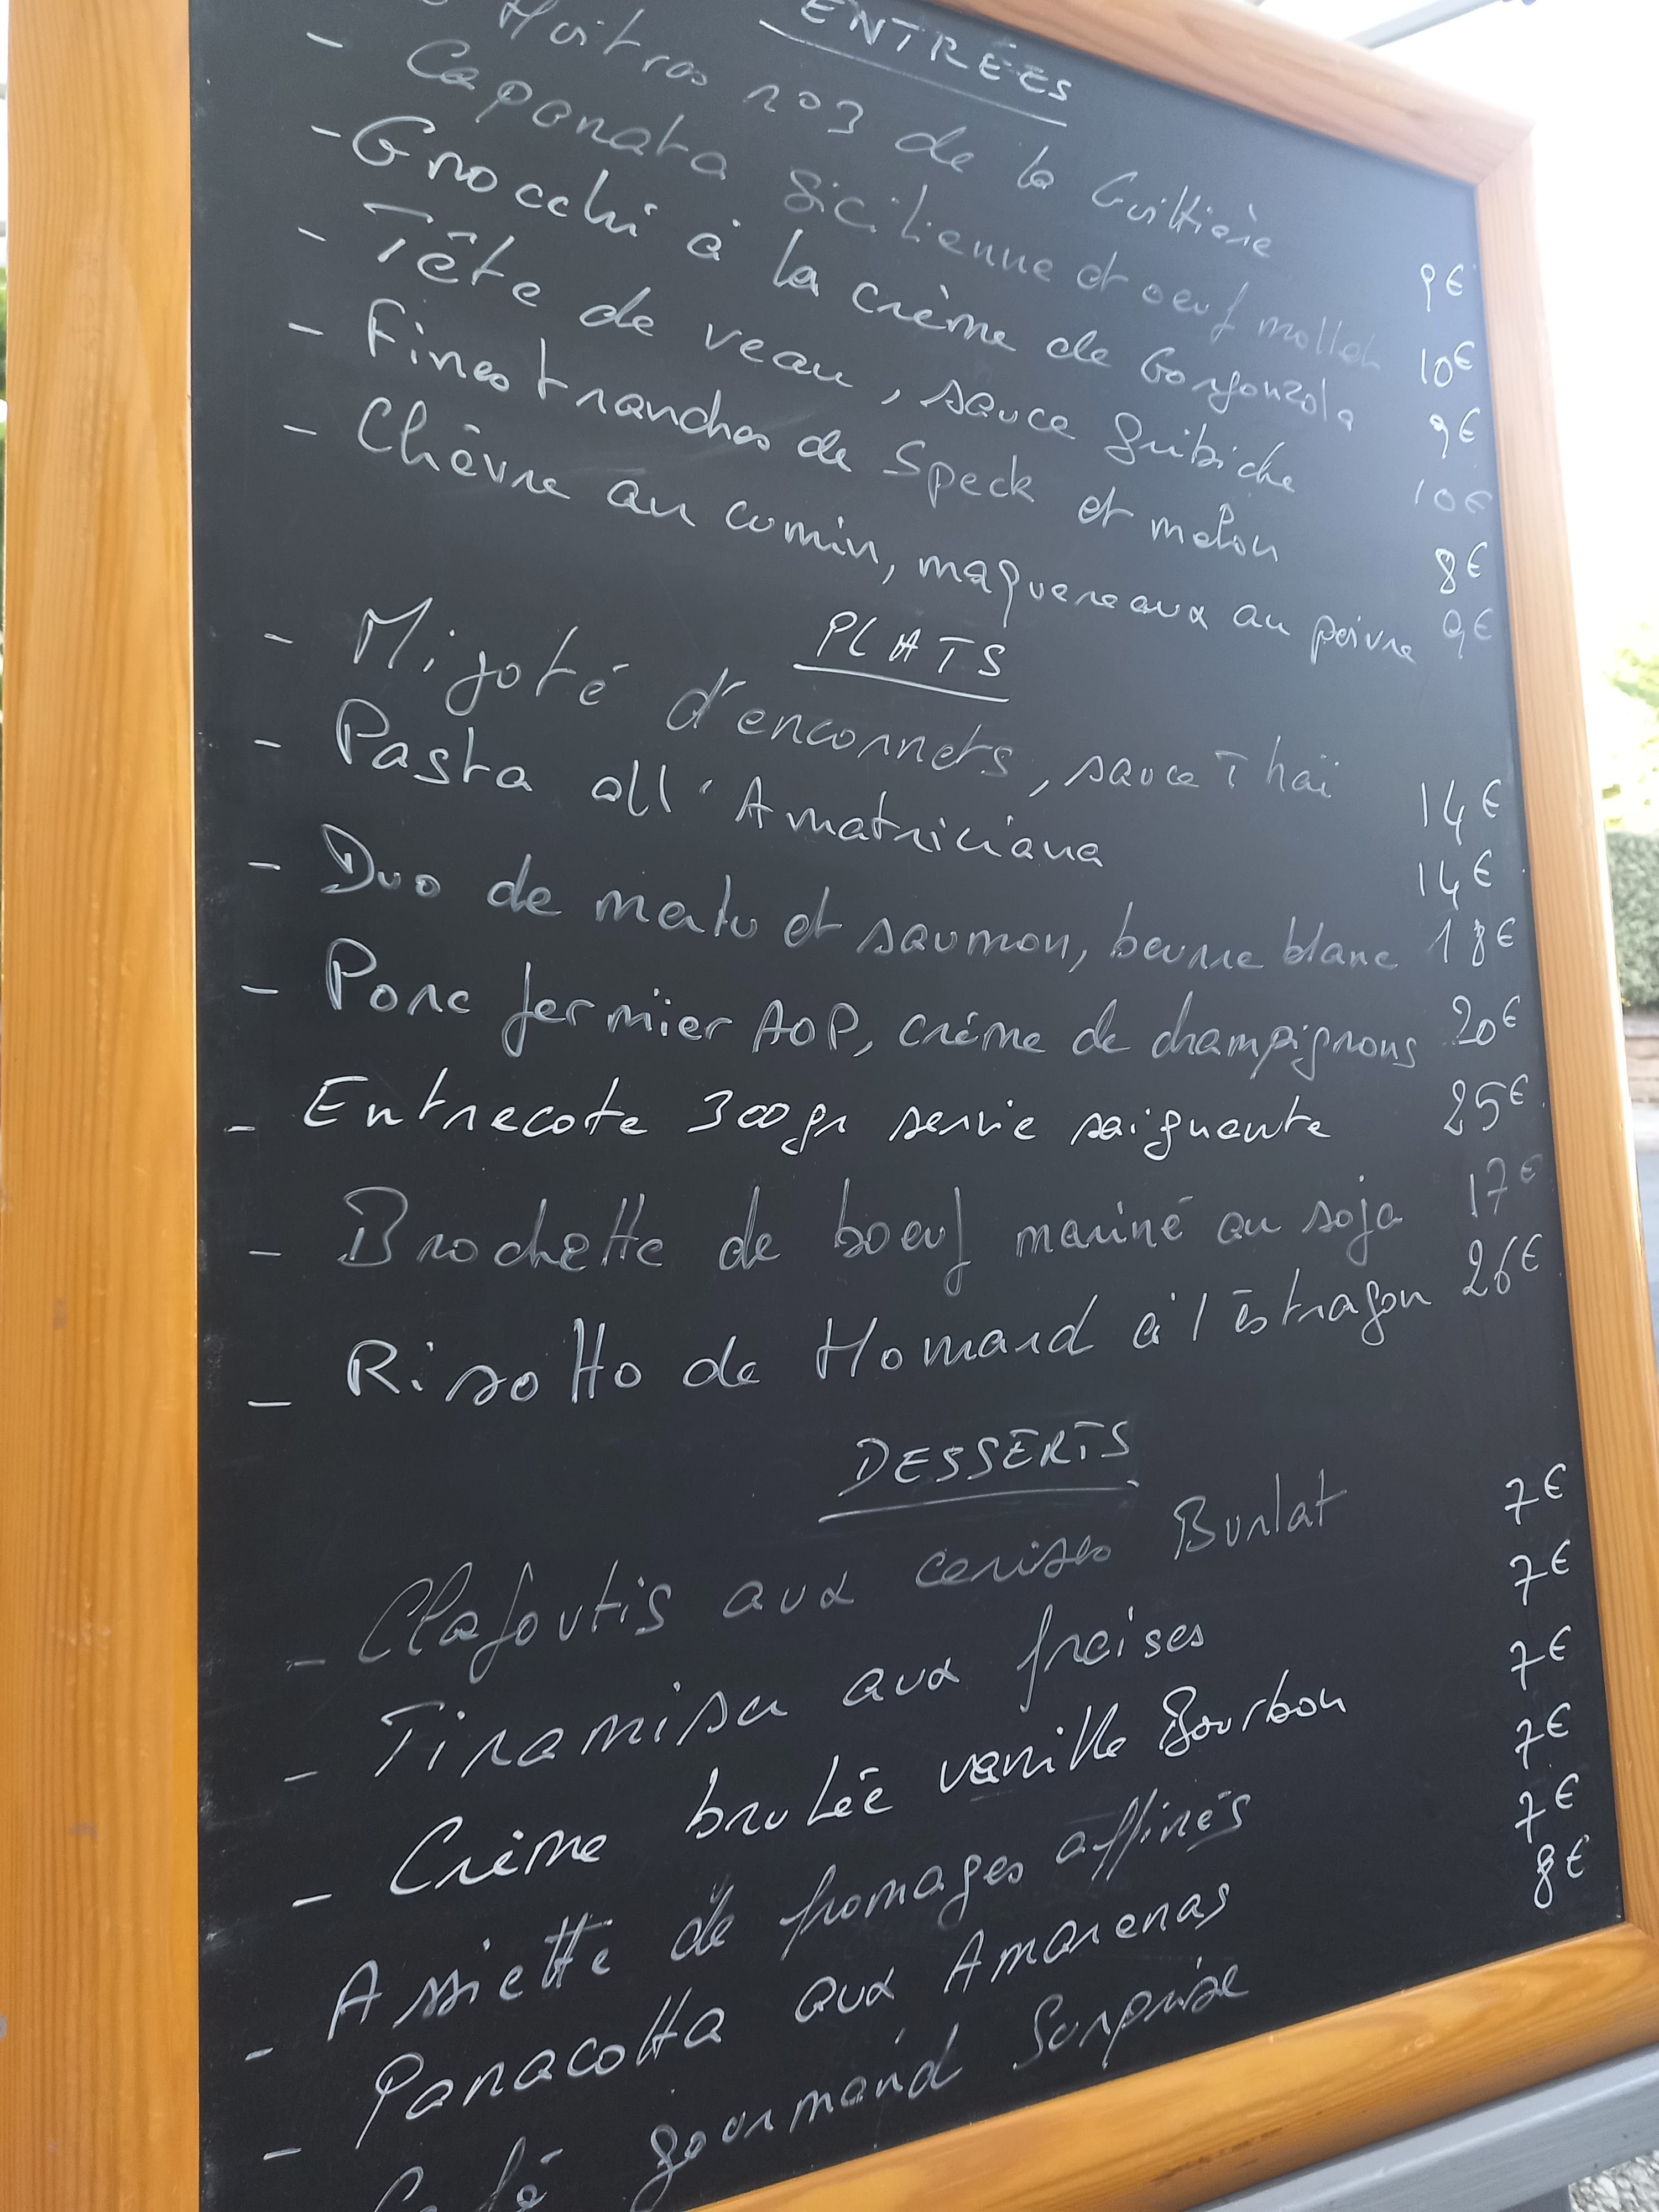 ENTRÉES
Huitres n°3 de la Guittière 9€
- Caponata Sicilienne et oeuf mollet 10€
- Gnocchi à la crème de Gorgonzola 9€
- Tête de veau, sauce gribiche 10€
- Fines tranches de Speck et melon 8€
- Chèvre au cumin, maquereaux au poivre 9€
PLATS
- Mijoté d'encornets, sauce Thaï 14€
- Pasta all'Amatriciana 14€
- Duo de merlu et saumon, beurre blanc 18€
- Porc fermier AOP, crème de champignons 20€
- Entrecote 300gr servie saignante 25€
- Brochette de boeuf mariné au soja 17€
- Risotto de Homard à l'éstragon 26€
DESSERTS
- Clafoutis aux cerises Burlat 7€
- Tiramisu aux fraises 7€
- Crème brulée vanille Bourbon 7€
- Assiette de fromages affinés 7€
- Panacotta aux Amarenas 7€
Café gourmand Surprise 8€